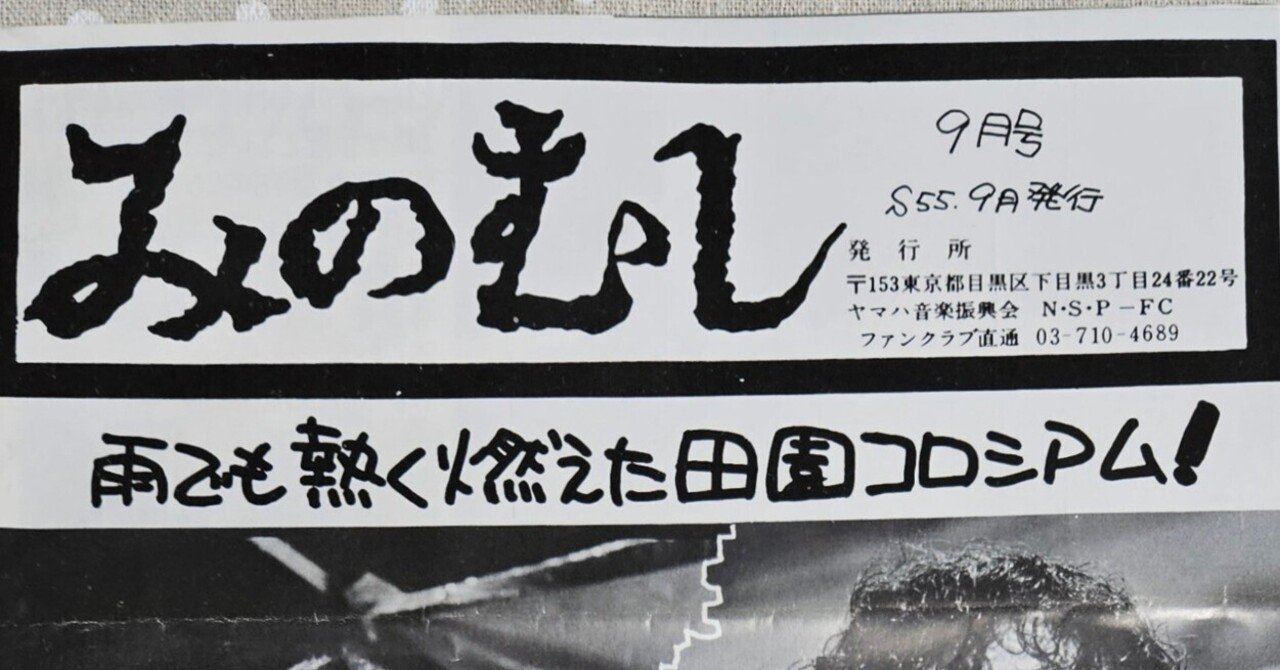 みのむし
9月号
S55.9月発行
発行所
〒153東京都目黒区下目黒3丁目24番22号
ヤマハ音楽振興会 N・S・P－FC
ファンクラブ直通 03-710-4689
雨でも熱く燃えた田園コロシアム!